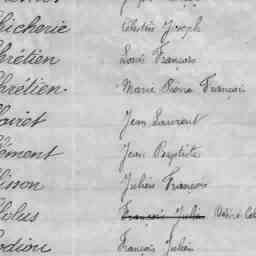 hicherie Célestin Joseph
hrétien Louis François
hrétien Marie Pierre François
lairet Jean Laurent
lément Jean Baptiste
lisson Julien François
lolus François Julien Désiré Cél
odiou François Julien